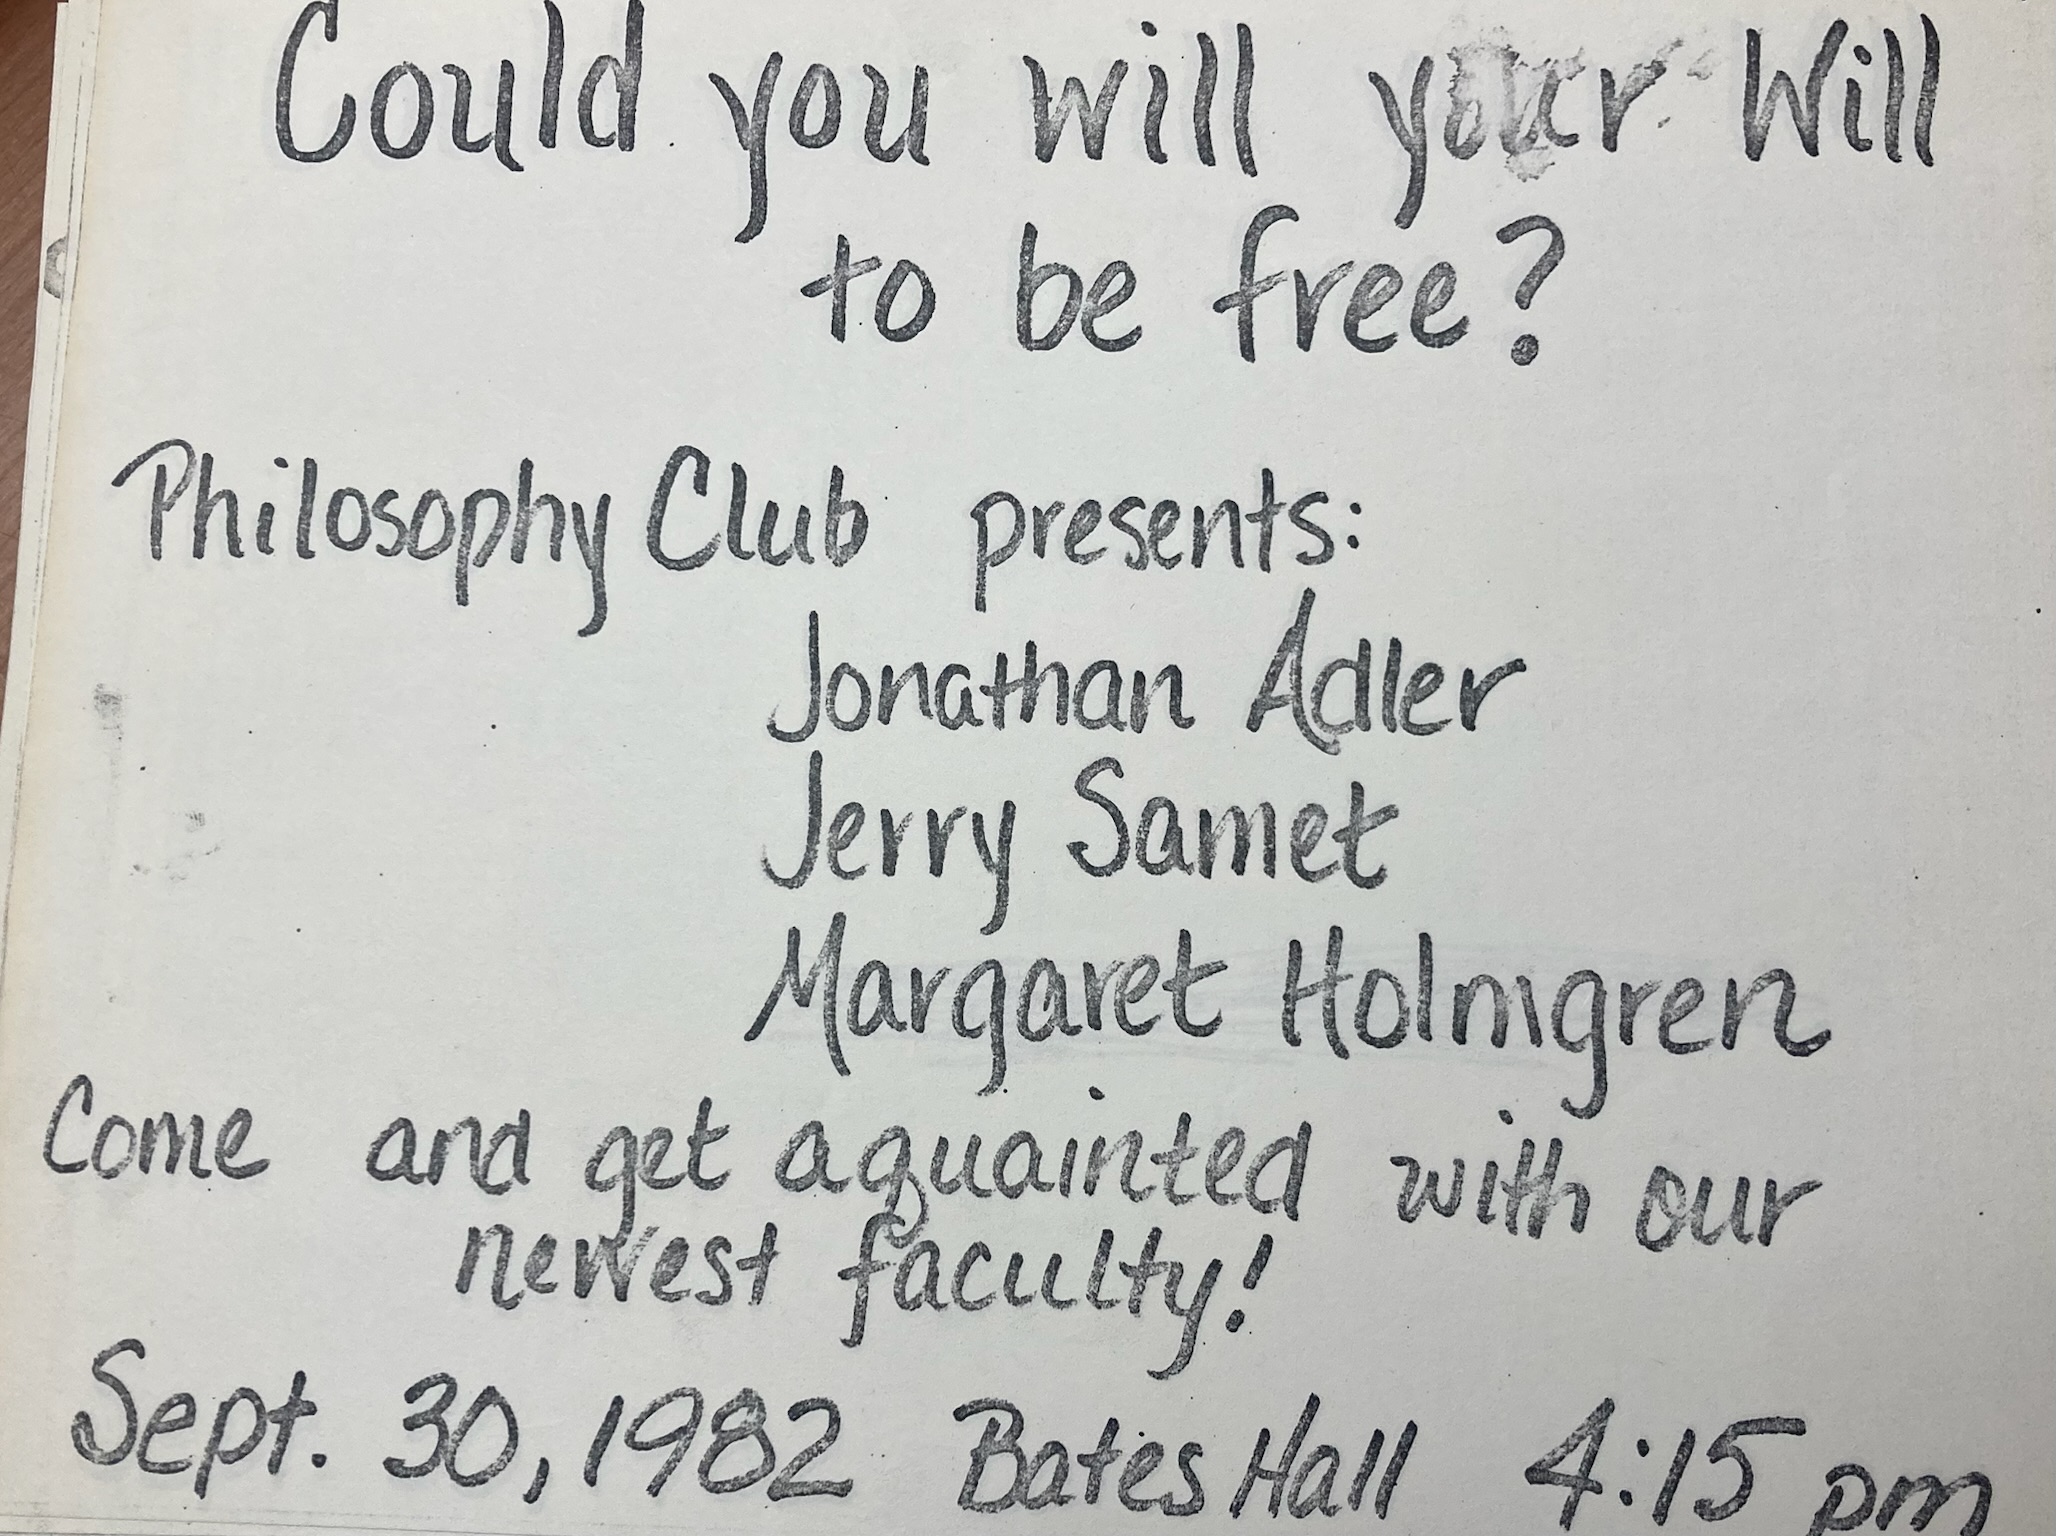 Could you will your Will
to be free?
Philosophy Club presents:
Jonathan Adler
Jerry Samet
Margaret Holmgren
Come and get aquainted with our
newest faculty!
Sept. 30, 1982 Bates Hall 4:15 pm